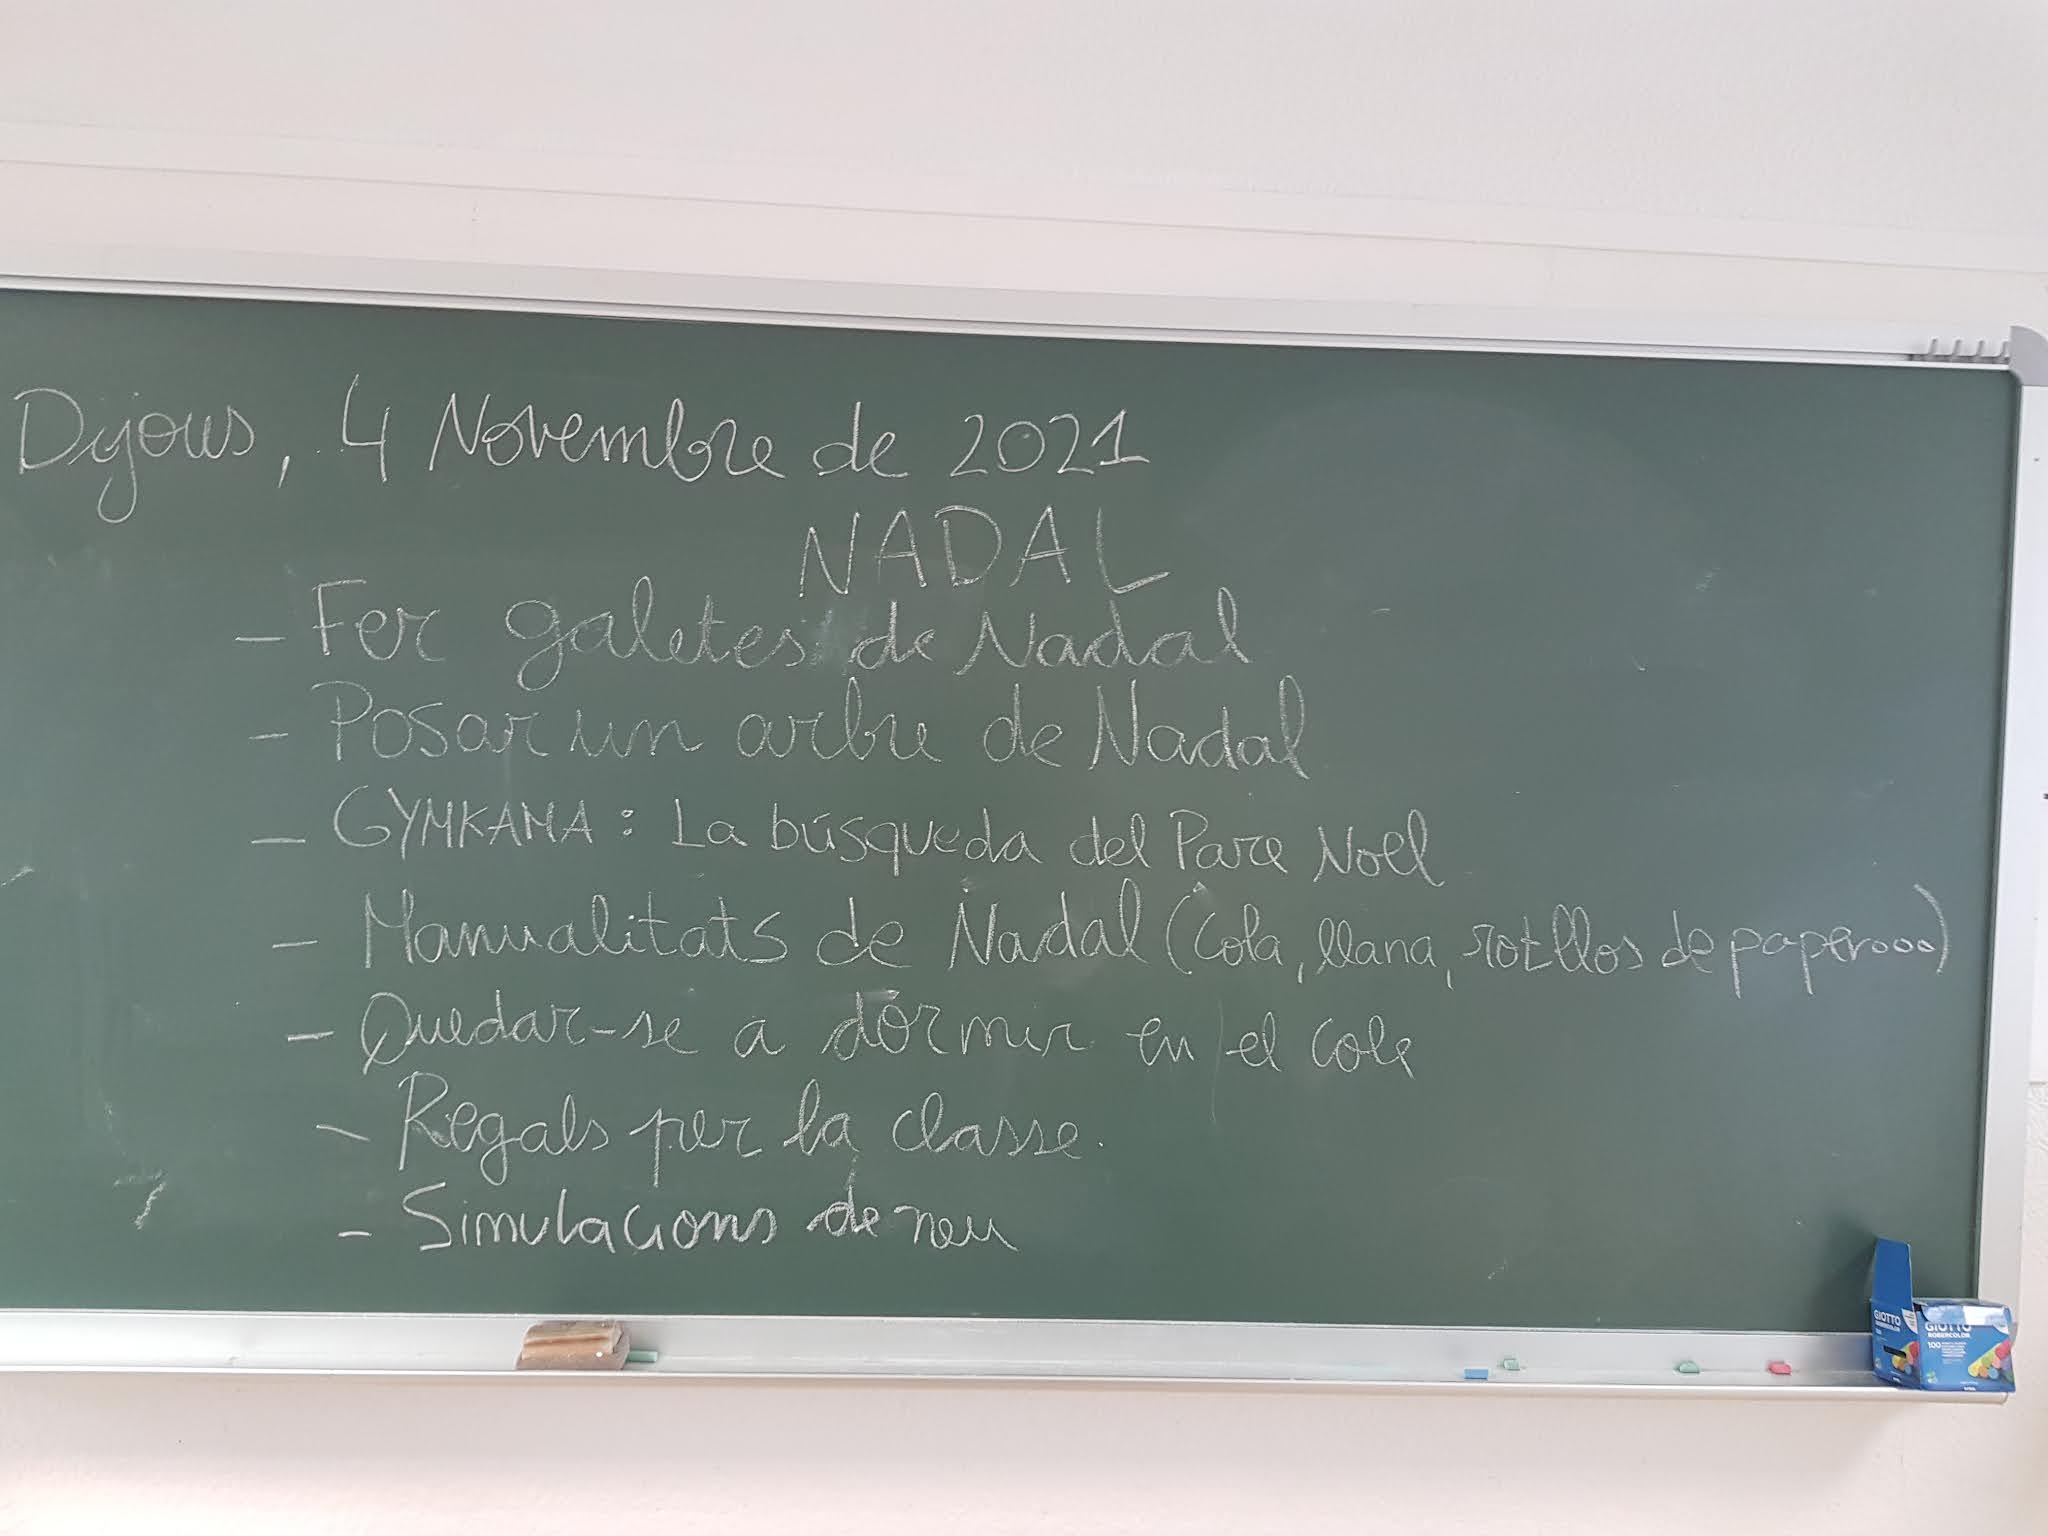 Dijous, 4 Novembre de 2021
NADAL
- Fer galetes de Nadal
- Posar un arbre de Nadal
- GYMKAMA: La búsqueda del Pare Noel
- Manualitats de Nadal (Cola, llana, rotllos de paper...)
- Quedar-se a dormir en el cole
- Regals per la classe.
- Simulacions de neu
GIOTTO
ROBERCOLOR
100
GIOTTO
ROBERCOLOR